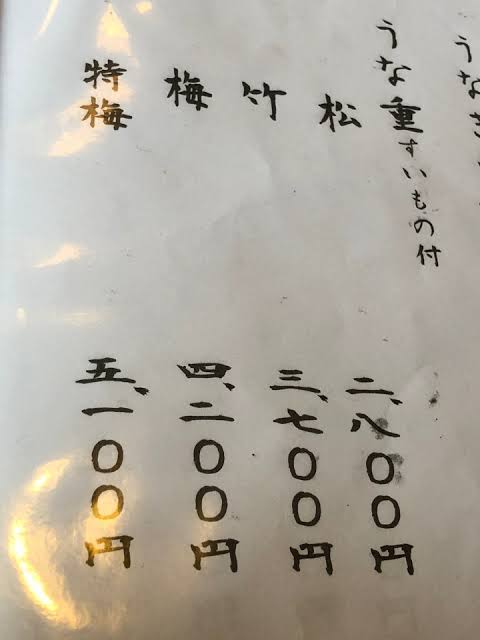 うなぎ
うな重すいもの付
松 二、八〇〇円
竹 三、七〇〇円
梅 四、二〇〇円
特梅 五、一〇〇円